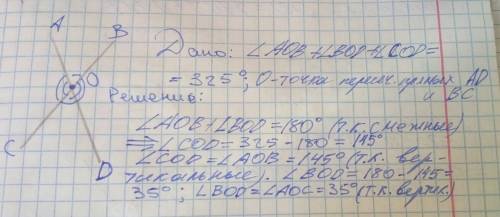 A
B
O
C
D
Дано: ∠AOB+∠BOD+∠COD=
=325°; O-точка перисч. прямых AD
и BC
Решение:
∠AOB+∠BOD=180° (т.к. смежные)
⇒∠COD=325-180°=145°
∠COD=∠AOB=145° (т.к. вер-
тикальные). ∠BOD=180-145=
35°; ∠BOD=∠AOC=35° (т.к. вертик.)